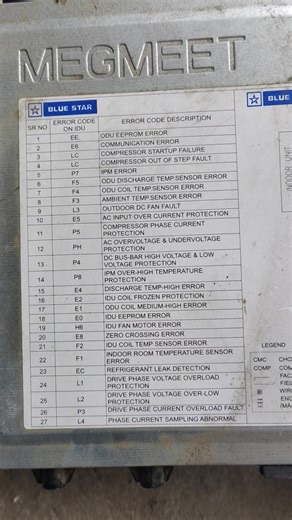 MEGMEET
BLUE STAR
BLUE
SR NO ERROR CODE ON IDU ERROR CODE DESCRIPTION
1 EE ODU EEPROM ERROR
2 E6 COMMUNICATION ERROR
3 LC COMPRESSOR STARTUP FAILURE
4 LC COMPRESSOR OUT OF STEP FAULT
5 P7 IPM ERROR
6 F5 ODU DISCHARGE TEMP.SENSOR ERROR
7 F4 ODU COIL TEMP.SENSOR ERROR
8 F3 AMBIENT TEMP.SENSOR ERROR
9 L3 OUTDOOR DC FAN FAULT
10 E5 AC INPUT OVER CURRENT PROTECTION
11 P5 COMPRESSOR PHASE CURRENT PROTECTION
12 PH AC OVERVOLTAGE & UNDERVOLTAGE PROTECTION
13 P4 DC BUS-BAR HIGH VOLTAGE & LOW VOLTAGE PROTECTION
14 P8 IPM OVER-HIGH TEMPERATURE PROTECTION
15 E4 DISCHARGE TEMP-HIGH ERROR
16 E2 IDU COIL FROZEN PROTECTION
17 E1 ODU COIL MEDIUM-HIGH ERROR
18 E0 IDU EEPROM ERROR
19 H6 IDU FAN MOTOR ERROR
20 E8 ZERO CROSSING ERROR
21 F2 IDU COIL TEMP SENSOR ERROR
22 F1 INDOOR ROOM TEMPERATURE SENSOR ERROR
23 EC REFRIGERANT LEAK DETECTION
24 L1 DRIVE PHASE VOLTAGE OVERLOAD PROTECTION
25 L2 DRIVE PHASE VOLTAGE OVER-LOW PROTECTION
26 P3 DRIVE PHASE CURRENT OVERLOAD FAULT
27 L4 PHASE CURRENT SAMPLING ABNORMAL
INDOOR UNIT
LEGEND
CMC CHO
COMP COM
FAC
FIEL
WIR
ENC
(MA